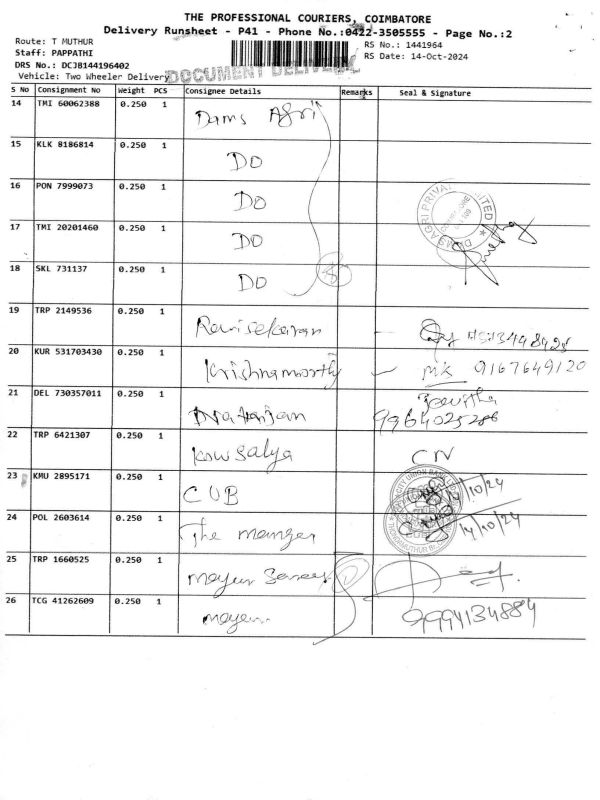 THE PROFESSIONAL COURIERS, COIMBATORE
Delivery Runsheet - P41 - Phone No.:0422-3505555 - Page No.:2
Route: T MUTHUR
RS No.: 1441964
Staff: PAPPATHI
RS Date: 14-Oct-2024
DRS No.: DCJB144196402
Vehicle: Two Wheeler Delivery
DOCUMENT DELIVERY
S No Consignment No Weight PCS Consignee Details Remarks Seal & Signature
14 TMI 60062388 0.250 1 Dams Agri
15 KLK 8186814 0.250 1 DO
16 PON 7999073 0.250 1 DO
17 TMI 20201460 0.250 1 DO
18 SKL 731137 0.250 1 DO
19 TRP 2149536 0.250 1 Ravisekaran
20 KUR 531703430 0.250 1 Krishnamorthy MK 9167649120
21 DEL 730357011 0.250 1 Natarajan
22 TRP 6421307 0.250 1 Kowsalya CN
23 KMU 2895171 0.250 1 CUB 14/10/24
24 POL 2603614 0.250 1 The manger 14/10/24
25 TRP 1660525 0.250 1 mayur
26 TCG 41262609 0.250 1 9994134884